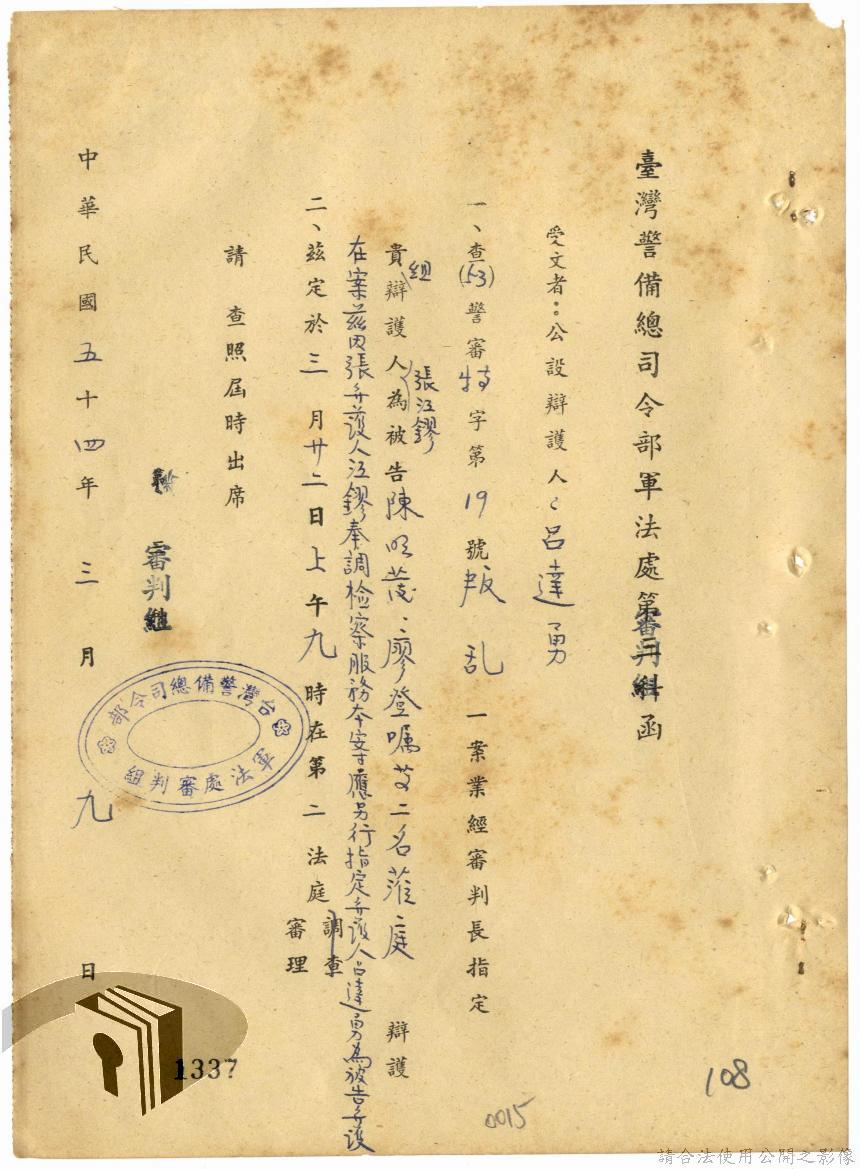 臺灣警備總司令部軍法處審判組函
受文者：公設辯護人 呂達勇
一、查(53)警審特字第19號叛乱一案業經審判長指定
貴組辯護人張江鏐為被告陳明發、廖登囑等二名蒞庭 辯護
在案茲因張弁護人江鏐奉調檢察服務本案應另行指定弁護人呂達勇為被告弁護
二、茲定於三月廿二日上午九時在第二法庭調查
審理
請查照屆時出席
審判組
台灣警備總司令部
軍法處審判組
中華民國五十四年三月九日
1337
0015
108
請合法使用公開之影像